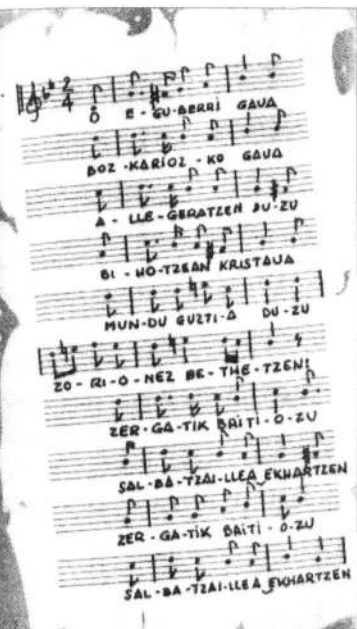 2 4
O E-GU-BERRI GAUA
BOZ-KARIOZ-KO GAUA
A-LLE-GERATZEN DU-ZU
BI-HO-TZEAN KRISTAUA
MUN-DU GUZTI-A DU-ZU
ZO-RI-O-NEZ BE-THE-TZEN:
ZER-GA-TIK BAITI-O-ZU
SAL-BA-TZAI-LLEA EKHARTZEN
ZER-GA-TIK BAITI-O-ZU
SAL-BA-TZAI-LLEA EKHARTZEN